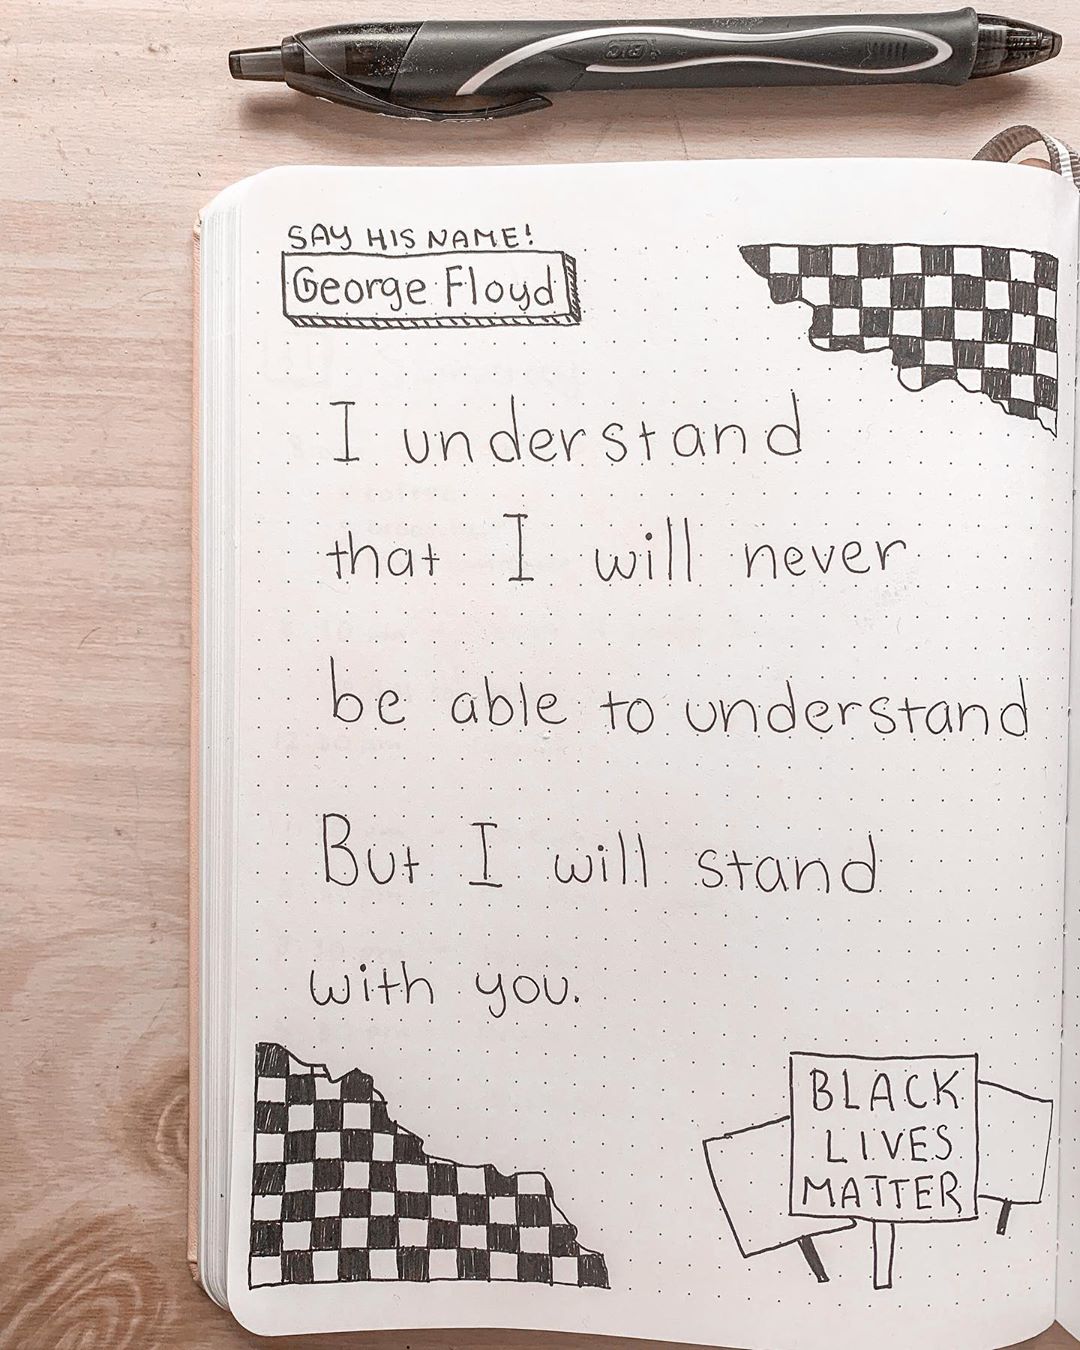 BIC
SAY HIS NAME!
George Floyd
I understand
that I will never
be able to understand
But I will stand
with you.
BLACK
LIVES
MATTER